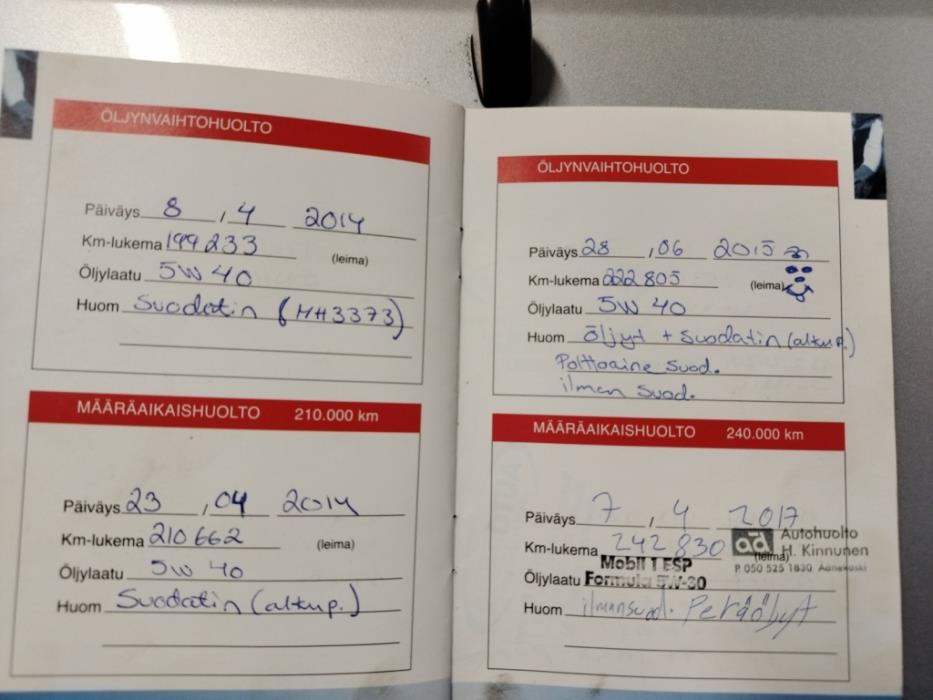 ÖLJYNVAIHTOHUOLTO
Päiväys 8 , 4 2014
Km-lukema 199233
(leima)
Öljylaatu 5W 40
Huom Suodatin (HH3373)
MÄÄRÄAIKAISHUOLTO 210.000 km
Päiväys 23 , 04 2014
Km-lukema 210662
(leima)
Öljylaatu 5W 40
Huom Suodatin (alkup.)
ÖLJYNVAIHTOHUOLTO
Päiväys 28 , 06 2015
Km-lukema 222805
(leima)
Öljylaatu 5W 40
Huom öljyt + Suodatin (alkup.)
Polttoaine Suod.
ilman Suod.
MÄÄRÄAIKAISHUOLTO 240.000 km
Päiväys 7 , 4 2017
Km-lukema 242830
(leima)
ad Autohuolto
H. Kinnunen
P. 050 525 1830 Äänekoski
Mobil 1 ESP
Öljylaatu Formula 5W-30
Huom ilmansuod. Peräöljyt